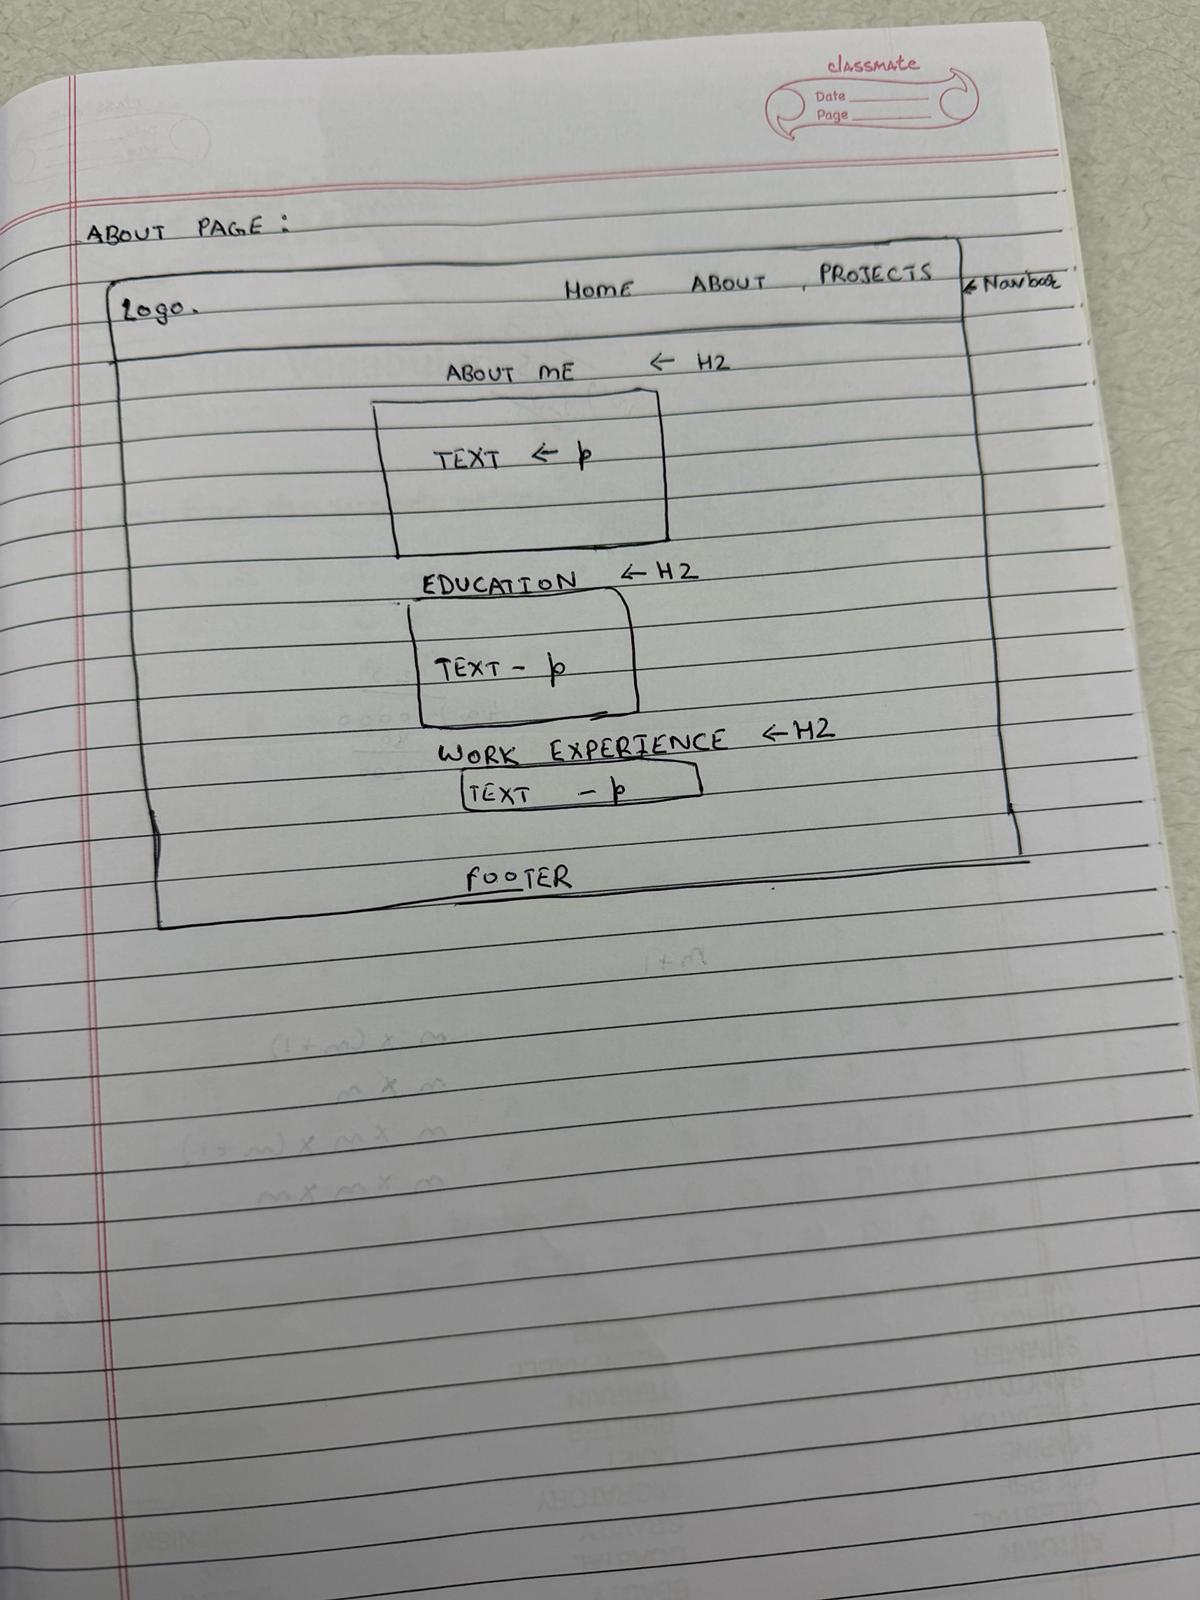 classmate
Date
Page
ABOUT PAGE :
Logo. HOME ABOUT PROJECTS ← Navbar
ABOUT ME ← H2
TEXT ← p
EDUCATION ← H2
TEXT - p
WORK EXPERIENCE ← H2
TEXT - p
FOOTER